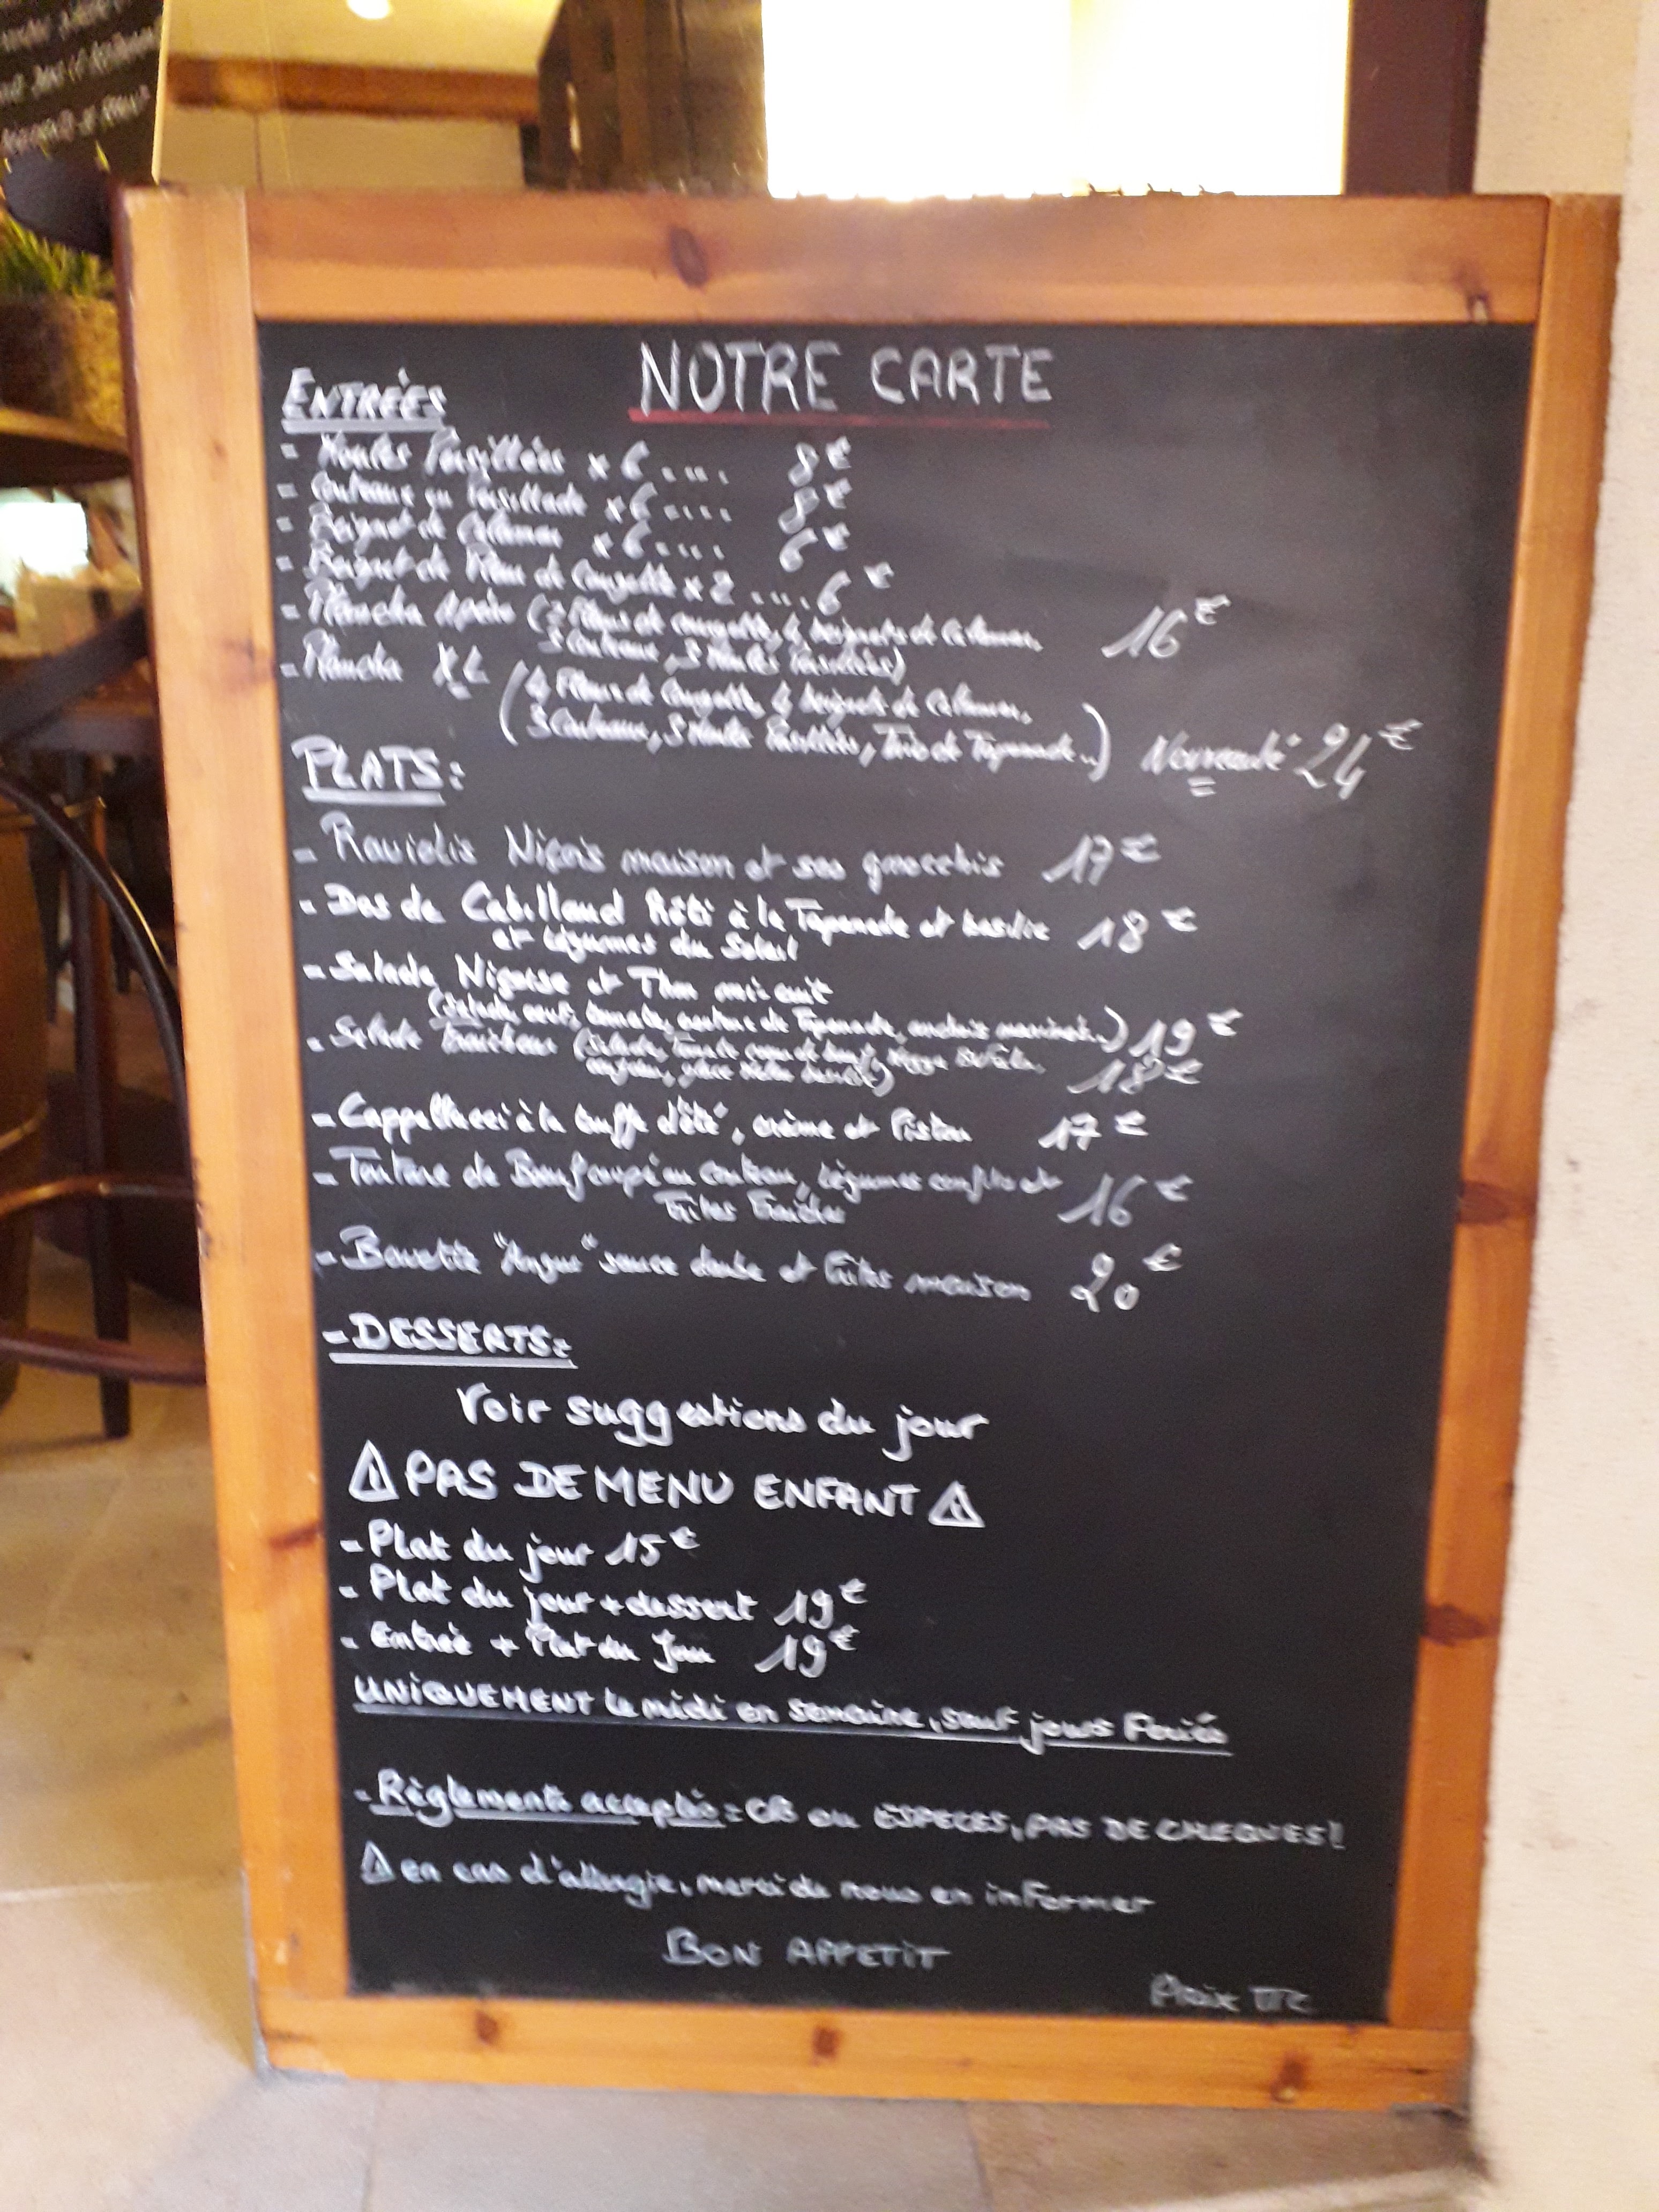 NOTRE CARTE
ENTRÉES
- Moules Persillées x 6 .... 8€
- Couteaux en Persillade x 6 .... 8€
- Beignet de Calamar x 6 .... 6€
- Beignet de Fleur de Courgette x 2 .... 6€
- Plancha Apéro (2 Fleurs de courgette, 4 beignets de Calamar, 16€
3 Couteaux, 3 Moules Persillées)
- Plancha XL (4 Fleurs de Courgette, 4 beignets de Calamar,
3 Couteaux, 3 Moules Persillées, Trio de Tapenade..) Nouveauté 24€
PLATS:
- Raviolis Niçois maison et ses gnocchis 17€
- Dos de Cabillaud Rôti à la Tapenade et basilic 18€
et Légumes du Soleil
- Salade Niçoise et Thon mi-cuit
(Salade, oeuf, tomate, de Tapenade, anchois marinés..) 19€
- Salade Fraîcheur (Salade, Tomate coeur de boeuf,
18€
- Cappellacci à la truffe d'été, crème et Pistou 17€
- Tartare de Boeuf coupé au couteau, légumes confits et 16€
Frites Fraîches
- Bavette "Angus" sauce daube et Frites maison 20€
- DESSERTS:
Voir suggestions du jour
⚠ PAS DE MENU ENFANT ⚠
- Plat du jour 15€
- Plat du jour + dessert 19€
- Entrée + Plat du Jour 19€
UNIQUEMENT le midi en semaine, sauf jours Feriés
- Règlements acceptés: CB ou ESPECES, PAS DE CHEQUES!
⚠ en cas d'allergie, merci de nous en informer
BON APPETIT
Prix TTC